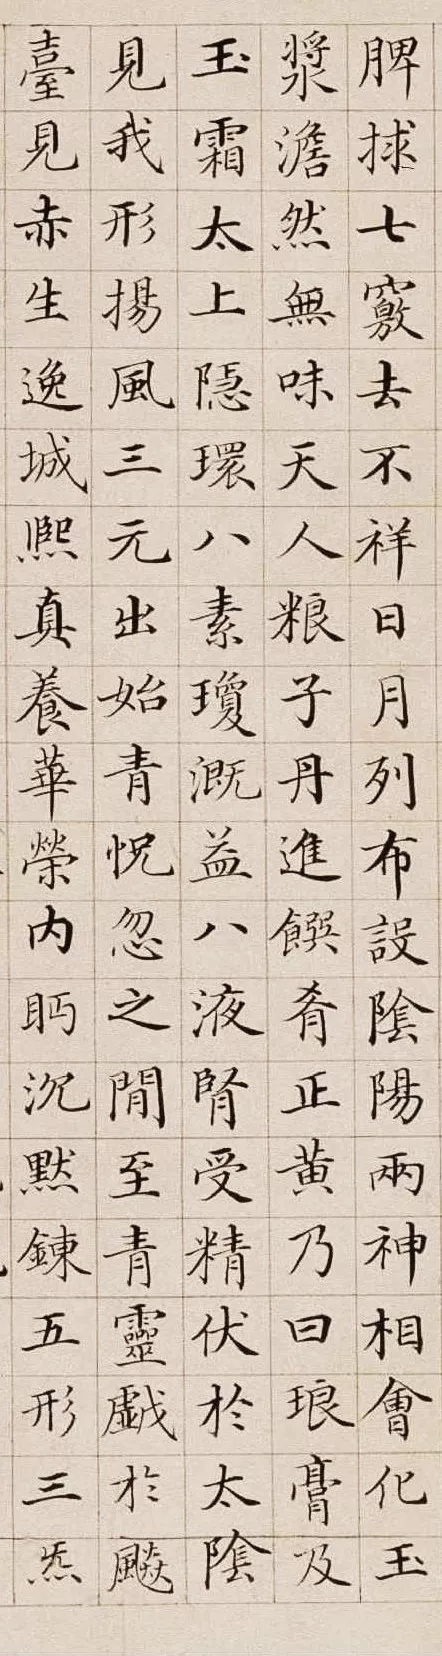 脾捄七竅去不祥日月列布設陰陽兩神相會化玉
漿澹然無味天人粮子丹進饌肴正黄乃曰琅膏及
玉霜太上隐環八素瓊溉益八液腎受精伏於太陰
見我形揚風三元出始青怳忽之閒至青靈戯於飈
臺見赤生逸城熈真養華榮内眄沉默鍊五形三炁